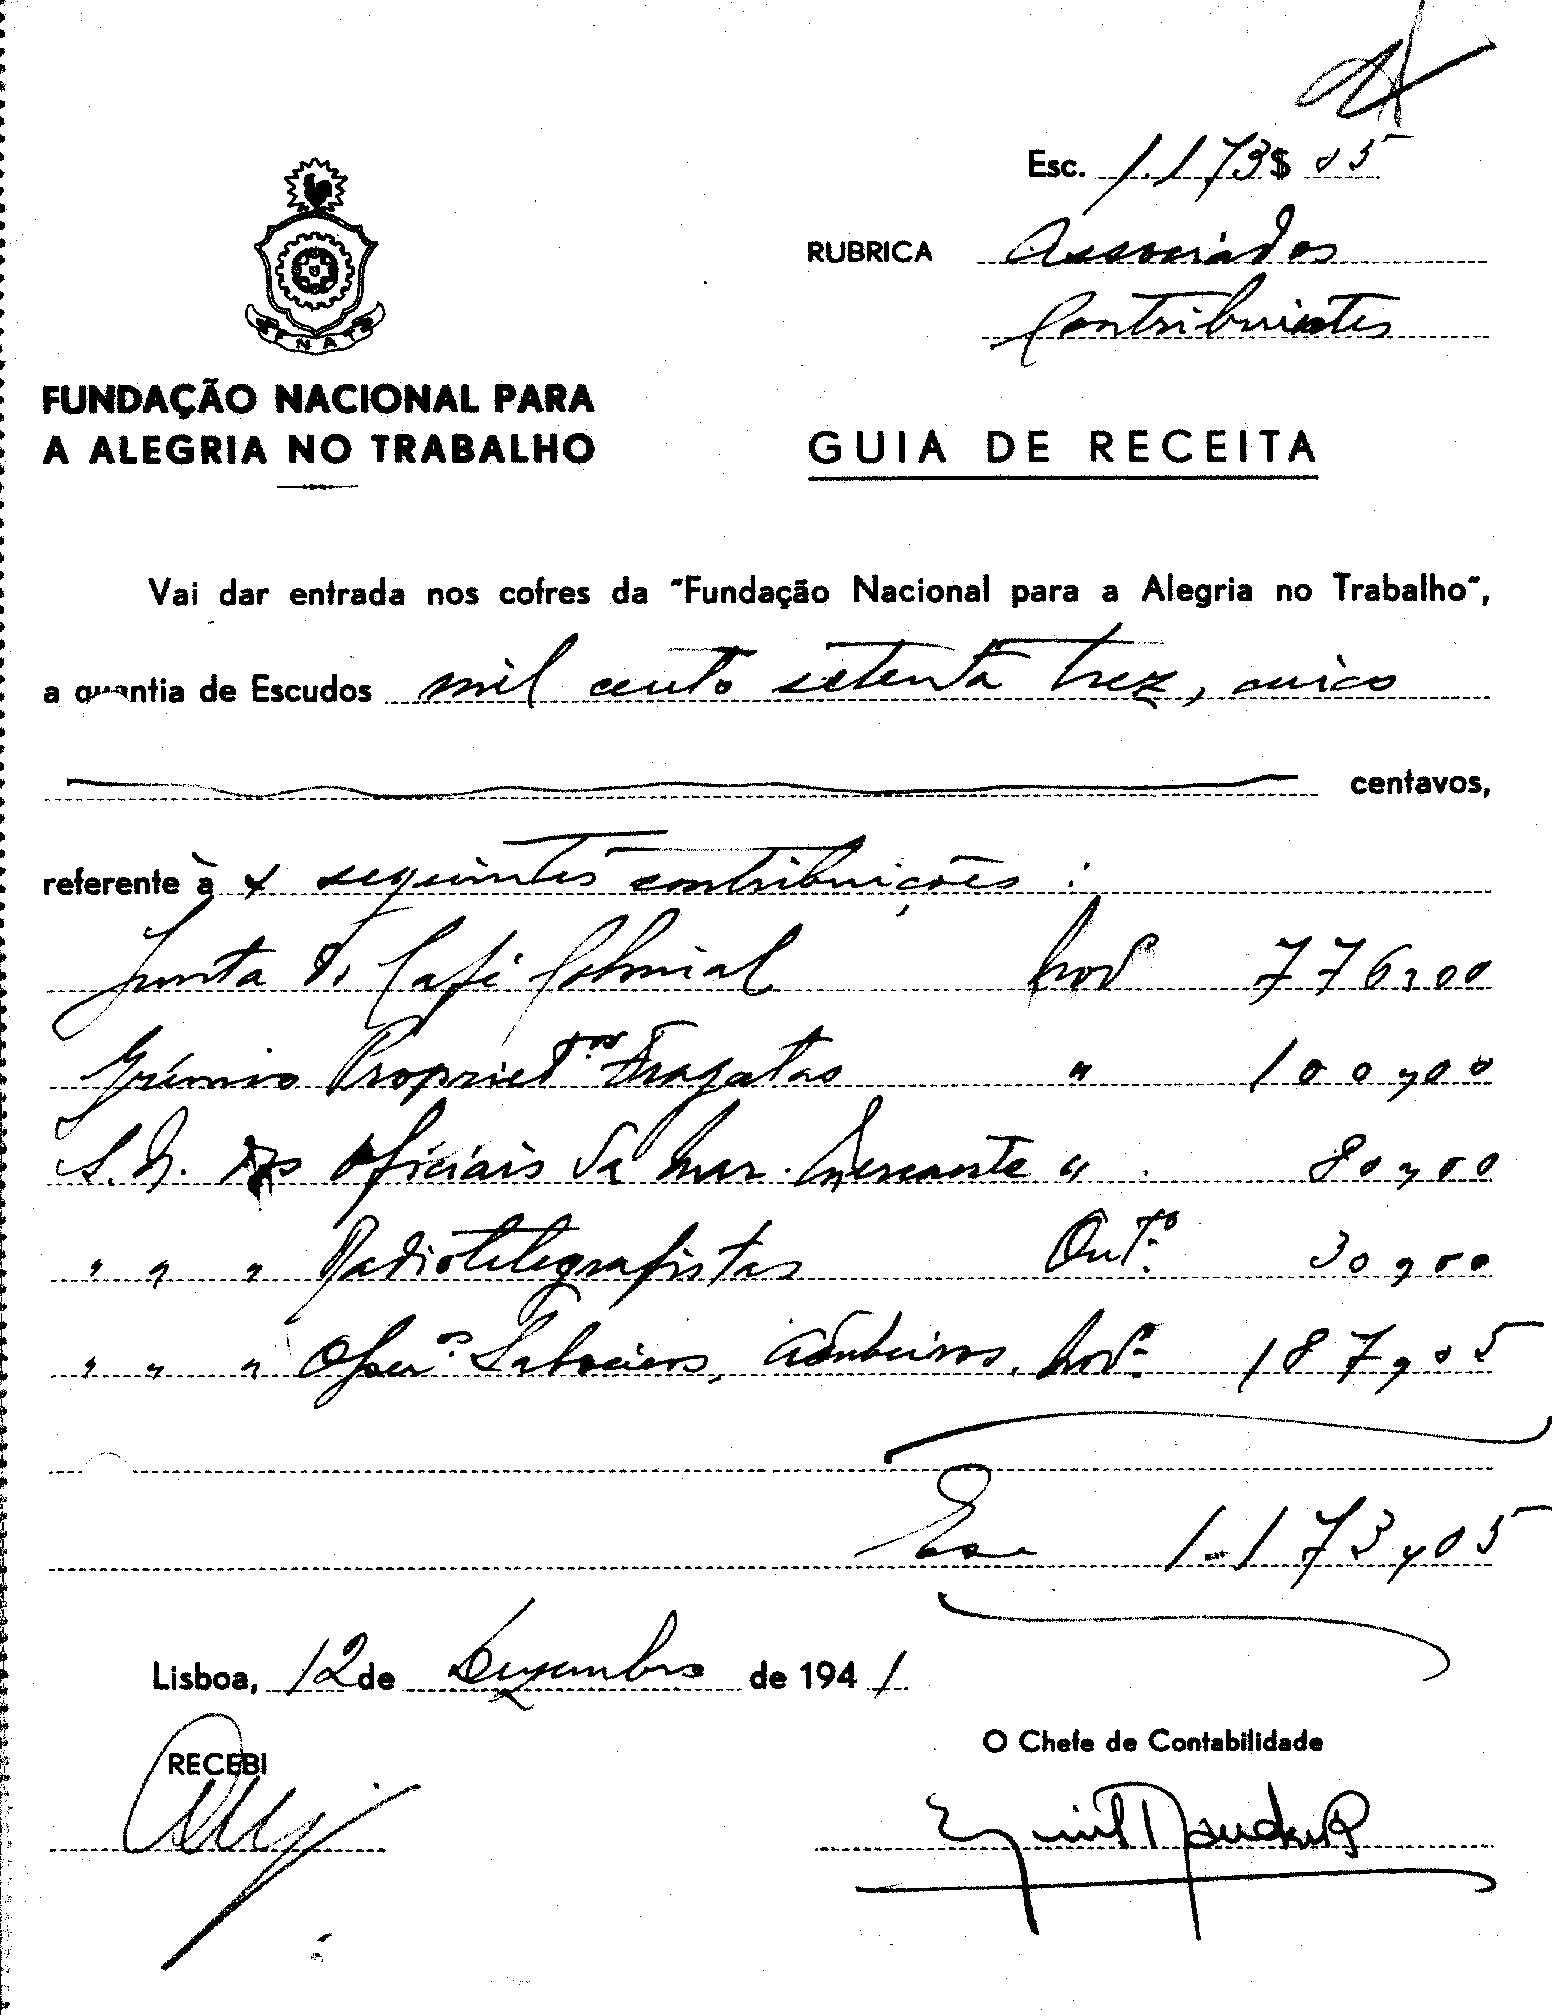 Esc. 1.173$05
RUBRICA Associados
Contribuintes
FENAT
FUNDAÇÃO NACIONAL PARA
A ALEGRIA NO TRABALHO
GUIA DE RECEITA
Vai dar entrada nos cofres da "Fundação Nacional para a Alegria no Trabalho",
a quantia de Escudos mil cento setenta trez, cinco
centavos,
referente às seguintes contribuições :
Junta do Café Colonial Nov 776,00
Grémio Propriet.os Fragatas " 100,00
S.N. dos Oficiais da Mar. Mercante " 80,00
" " " Radiotelegrafistas Out.o 30,00
" " " Oper.os Nov.o 187,05
Esc 1.173,05
Lisboa, 12 de Dezembro de 1941
RECEBI
O Chefe de Contabilidade